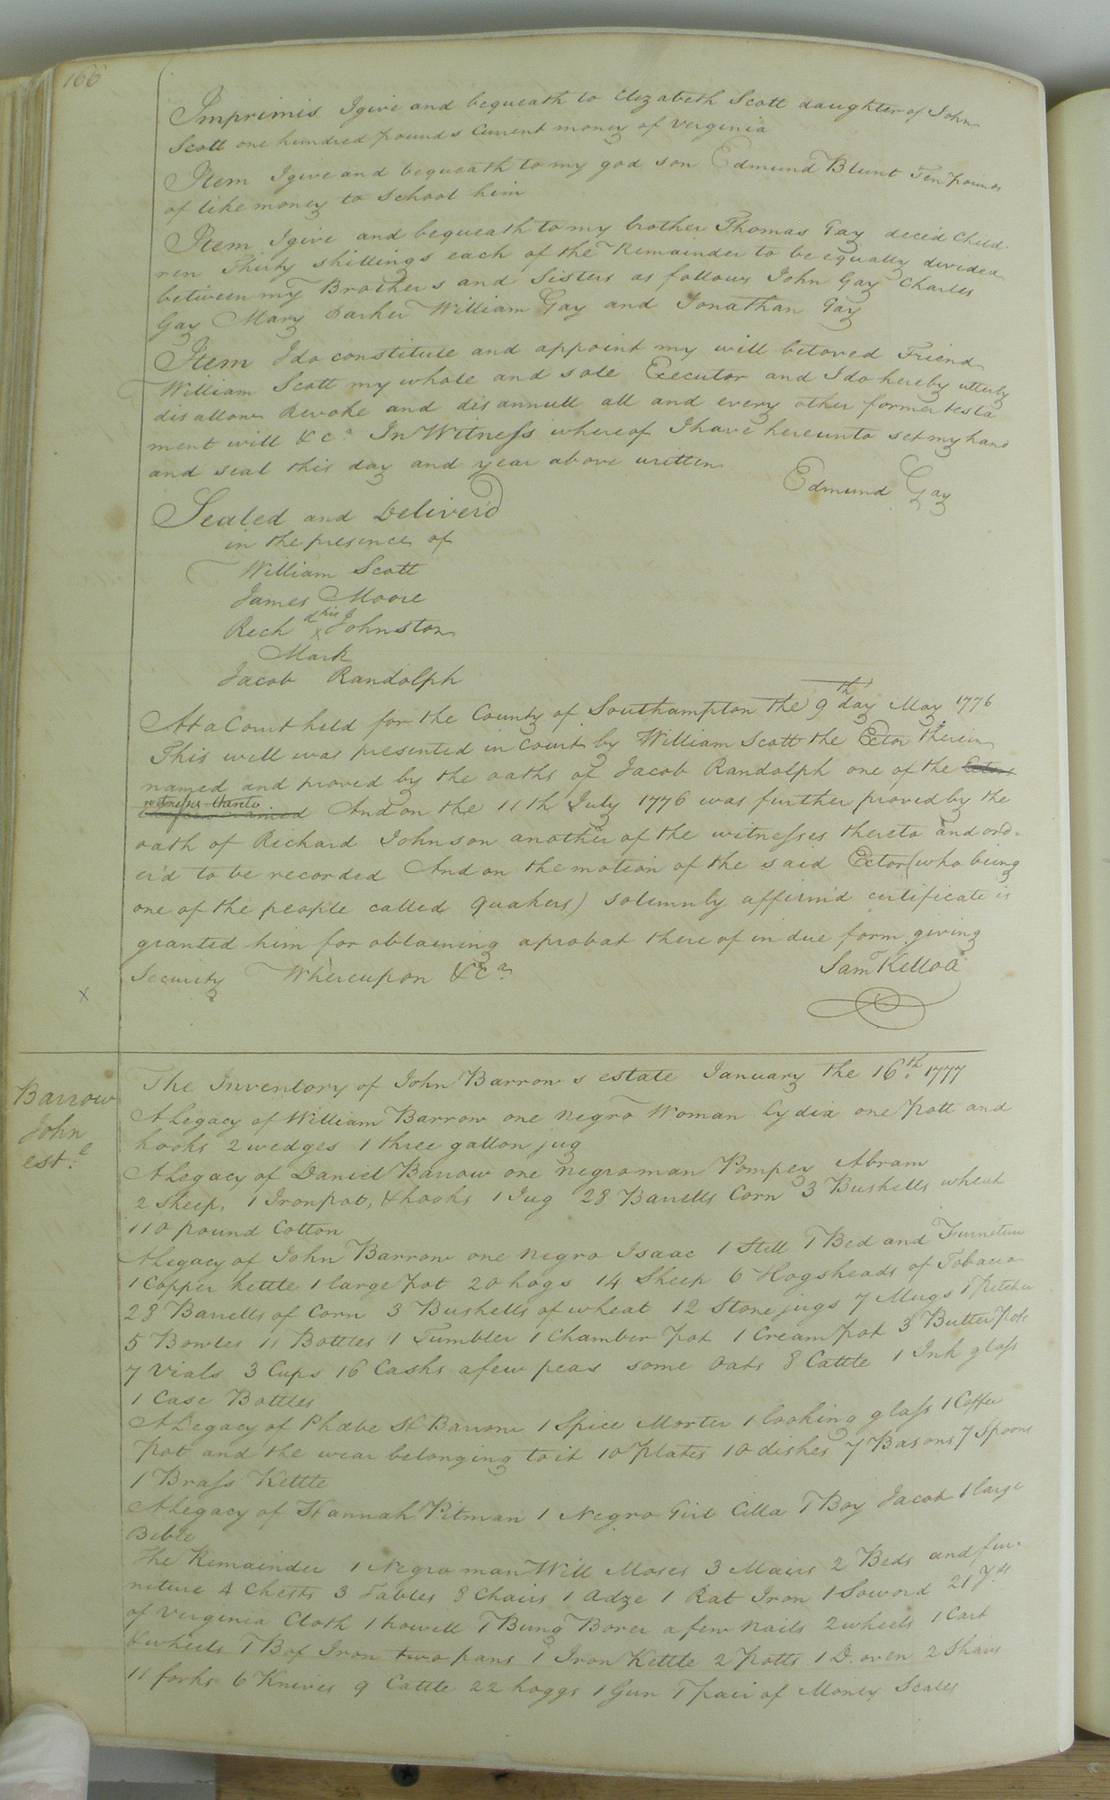 166
Imprimis I give and bequeath to Elizabeth Scott daughter of John
Scott one hundred pounds Current money of Virginia
Item I give and bequeath to my god son Edmund Blunt Ten pounds
of like money to School him
Item I give and bequeath to my brother Thomas Gay deced Child
ren Thirty shillings each of the Remainder to be equally divided
between my Brothers and Sisters as follows John Gay Charles
Gay Mary Parker William Gay and Jonathan Gay
Item I do constitute and appoint my will beloved Friend
William Scott my whole and sole Executor and I do hereby utterly
disallow Revoke and disannull all and every other former testa
ment will &ca. In Witness whereof I have hereunto set my hand
and seal this day and year above written
Edmund Gay
Sealed and Deliver'd
in the presence of
William Scott
James Moore
Richd his x Johnston
Mark
Jacob Randolph
At a Court held for the County of Southampton the 9th day May 1776
This will was presented in court by William Scott the Ector therein
named and proved by the oaths of Jacob Randolph one of the
witness thereto And on the 11th July 1776 was further proved by the
oath of Richard Johnson another of the witnesses thereto and ord-
er'd to be recorded And on the motion of the said Ector (who being
one of the people called quakers) solemnly affirm'd certificate is
granted him for obtaining a probat thereof in due form giving
Security Whereupon &ca.
Saml Kello
x
Barrow
John
este
The Inventory of John Barrow s estate January the 16th. 1777
A Legacy of William Barrow one negro Woman Lydia one Pott and
hooks 2 wedges 1 three gallon jug
A Legacy of Daniel Barrow one negro man Pompey Abram
2 Sheep, 1 Iron pot, & hooks 1 Jug 28 Barrells Corn 3 Bushells wheat
110 pound Cotton
A Legacy of John Barrow one negro Isaac 1 Still 1 Bed and Furniture
1 Copper kettle 1 large pot 20 hogs 14 Sheep 6 Hogsheads of Tobacco
28 Barrells of Corn 3 Bushells of wheat 12 Stone jugs 7 Mugs 1 Pitcher
5 Bowles 11 Bottles 1 Tumbler 1 Chamber Pot 1 Cream Pot 3 Butter Pots
7 Vials 3 Cups 16 Casks a few peas some Oats 8 Cattle 1 Ink glass
1 Case Bottles
A Legacy of Phœbe St Barrow 1 Spice Morter 1 looking glass 1 Coffee
Pot and the wear belonging to it 10 Plates 10 dishes 7 Basons 7 Spoons
1 Brass Kettle
A Legacy of Hannah Pitman 1 Negro Girl Cilla 1 Boy Jacob 1 large
Bible
The Remainder 1 Negro man Will Moses 3 Mairs 2 Beds and fur-
niture 4 Chests 3 Tables 8 Chairs 1 Adze 1 Rat Iron 1 Soword 21 yds
of Virginia Cloth 1 howell 1 Bung Borer a few nails 2 wheels 1 Cart
& wheels 1 Box Iron two pans 1 Iron Kettle 2 Potts 1 D. oven 2 Shavs
11 forks 6 Knives 9 Cattle 22 hoggs 1 Gun 1 pair of Money Scales